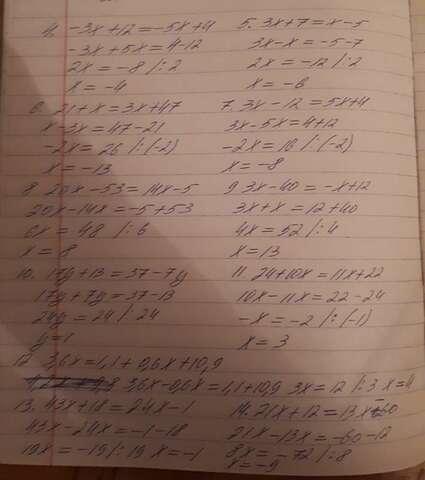 4. -3x+12=-5x+4
-3x+5x=4-12
2x=-8 /:2
x=-4
5. 3x+7=x-5
3x-x=-5-7
2x=-12 /:2
x=-6
6. 21+x=3x+47
x-3x=47-21
-2x=26 /:(-2)
x=-13
7. 3x-12=5x+4
3x-5x=4+12
-2x=16 /:(-2)
x=-8
8. 20x-53=14x-5
20x-14x=-5+53
6x=48 /:6
x=8
9. 3x-40=-x+12
3x+x=12+40
4x=52 /:4
x=13
10. 17y+13=37-7y
17y+7y=37-13
24y=24 /:24
y=1
11. 24+10x=11x+22
10x-11x=22-24
-x=-2 /:(-1)
x=3
12. 3,6x=1,1+0,6x+10,9
3,6x-0,6x=1,1+10,9 3x=12 /:3 x=4
13. 43x+18=24x-1
43x-24x=-1-18
19x=-19/:19 x=-1
14. 21x+12=13x-60
21x-13x=-60-12
8x=-72 /:8
x=-9